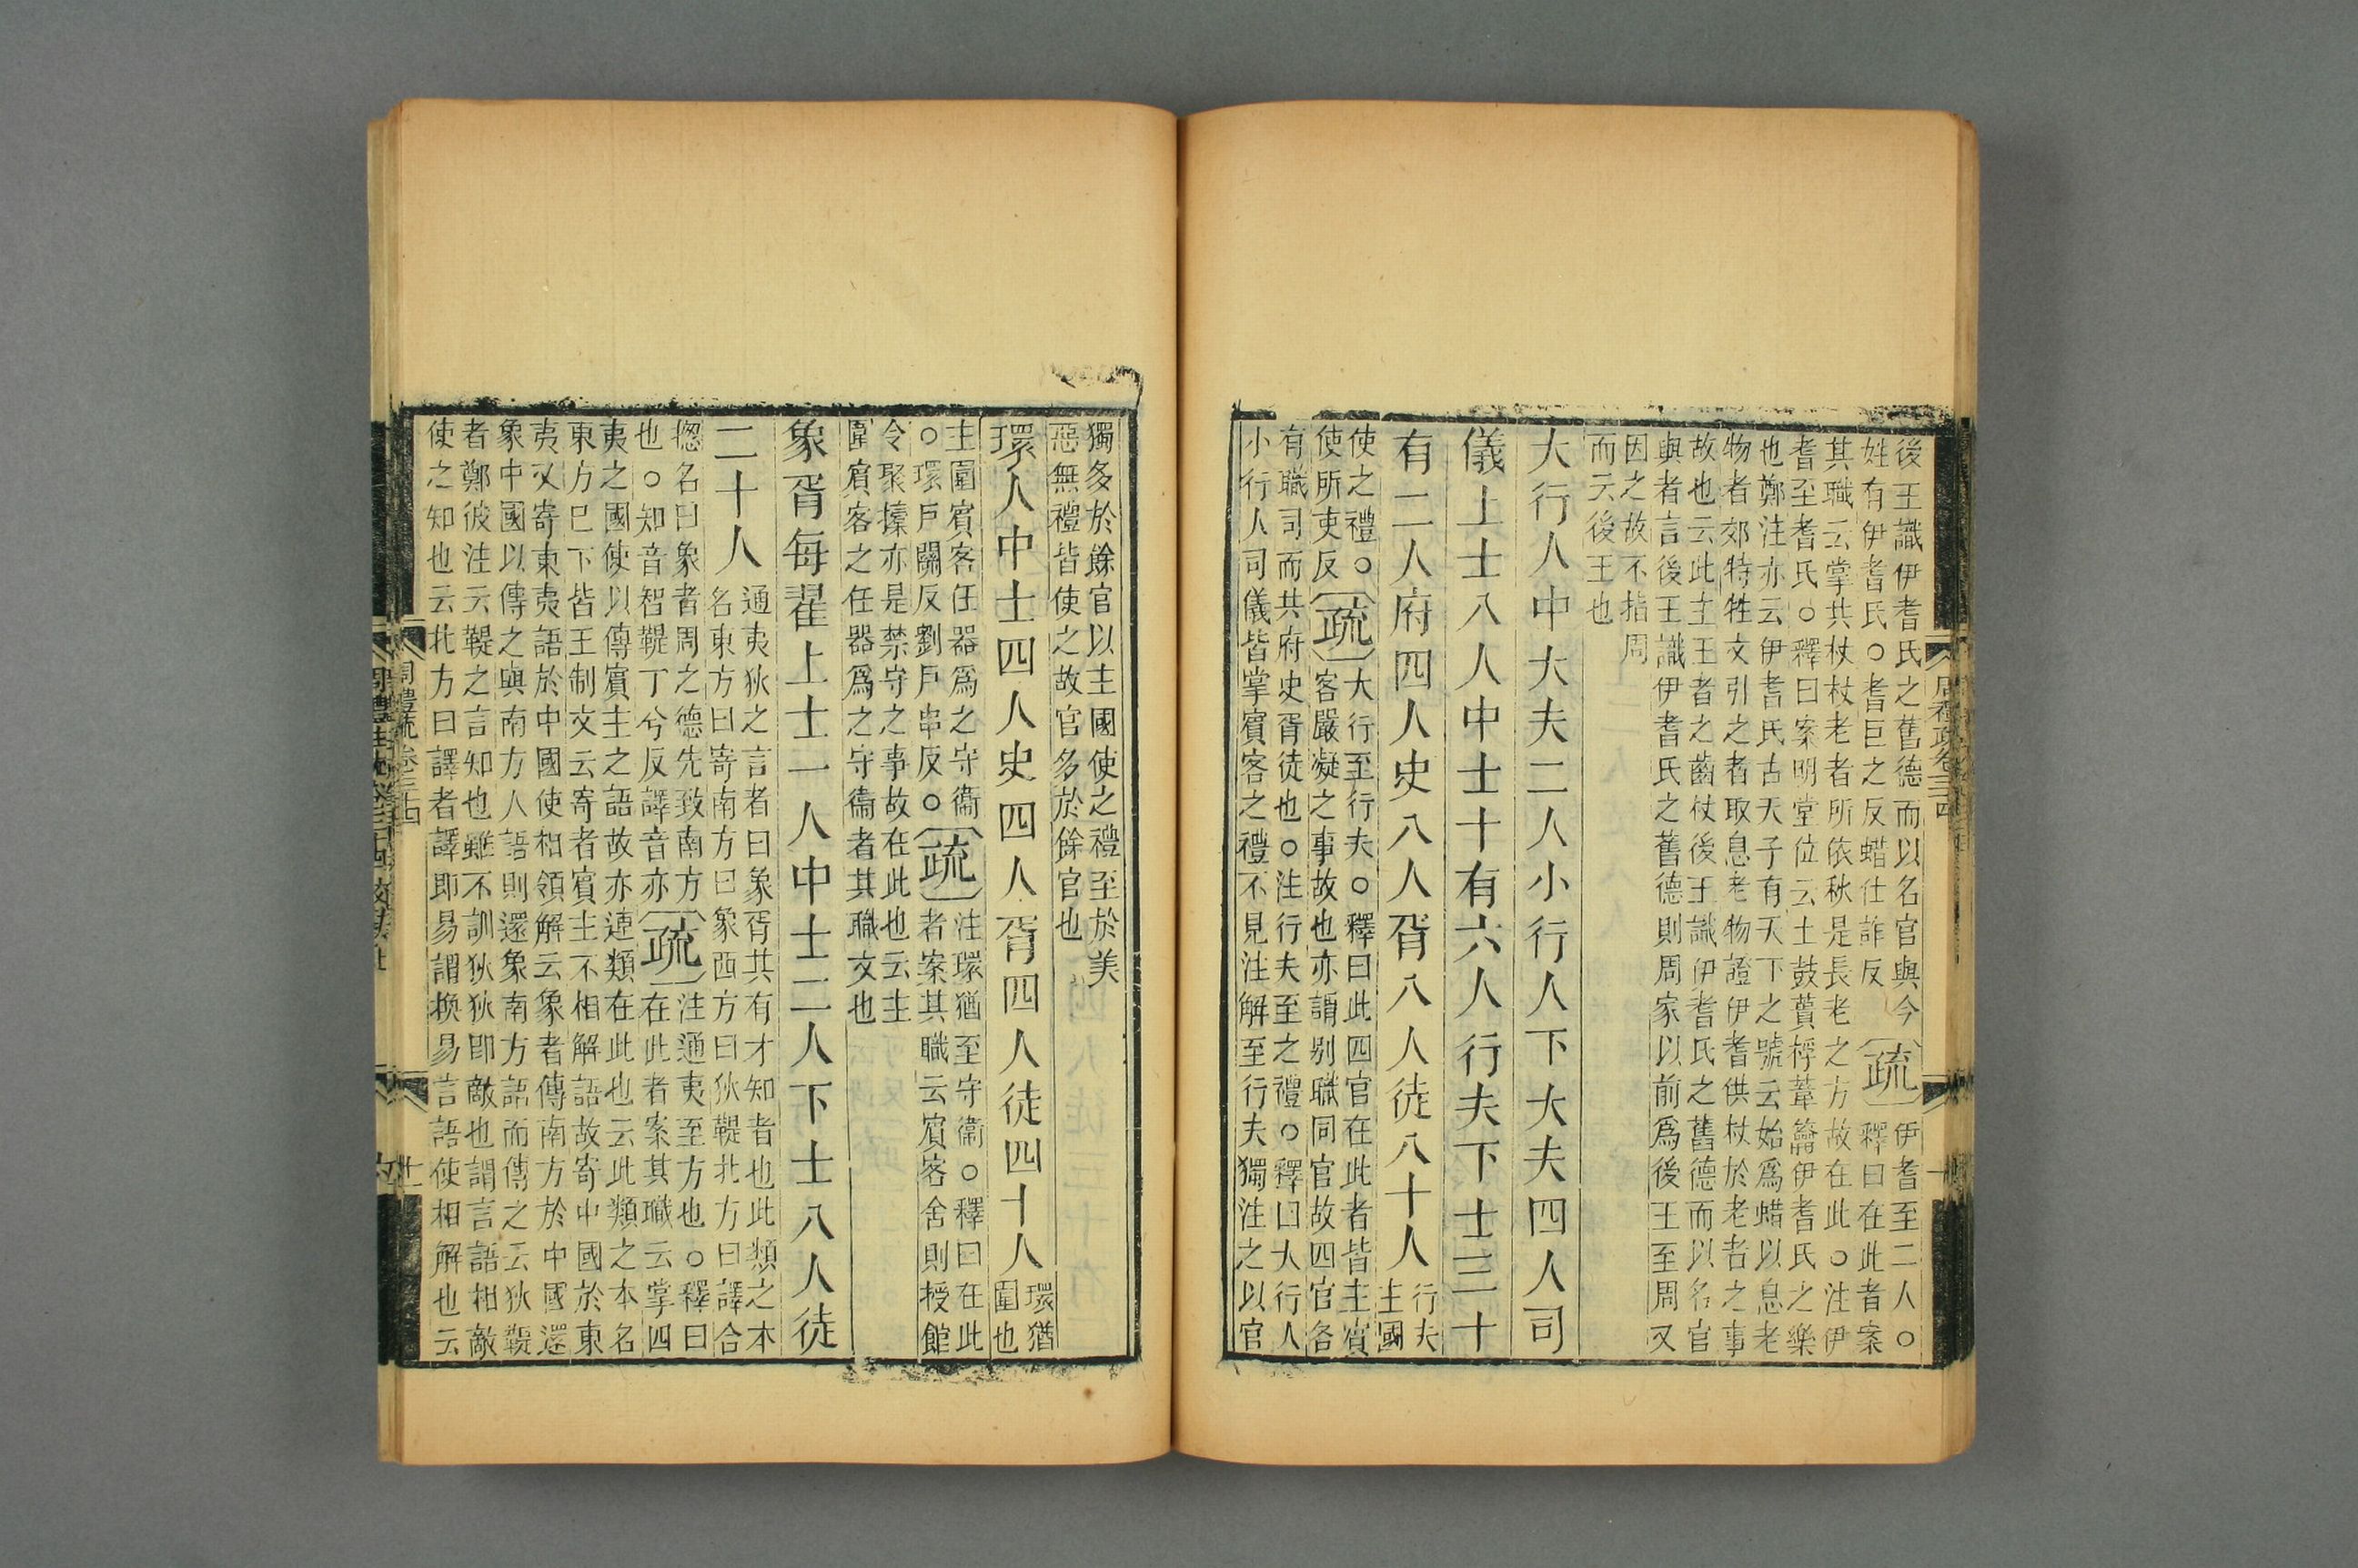 後王識伊耆氏之舊德而以名官與今
姓有伊耆氏○耆巨之反蜡仕詐反
〔疏〕
伊耆至二人○
釋曰在此者案
其職云掌共杖杖老者所依秋是長老之方故在此○注伊
耆至耆氏○釋曰案明堂位云土鼓蕢桴葦籥伊耆氏之樂
也鄭注亦云伊耆氏古天子有天下之號云始爲蜡以息老
物者郊特牲文引之者取息老物證伊耆供杖於老者之事
故也云此主王者之齒杖後王識伊耆氏之舊德而以名官
與者言後王識伊耆氏之舊德則周家以前爲後王至周又
因之故不指周
而云後王也
大行人中大夫二人小行人下大夫四人司
儀上士八人中士十有六人行夫下士三十
有二人府四人史八人胥八人徒八十人
行夫
主國
使之禮○
使所吏反
〔疏〕
大行至行夫○釋曰此四官在此者皆主賓
客嚴凝之事故也亦謂别職同官故四官各
有職司而共府史胥徒也○注行夫至之禮○釋曰大行人
小行人司儀皆掌賓客之禮不見注解至行夫獨注之以官
獨多於餘官以主國使之禮至於美
惡無禮皆使之故官多於餘官也
環人中士四人史四人胥四人徒四十人
環猶
圍也
主圍賓客任器爲之守衞
○環戶關反劉戶串反○
〔疏〕
注環猶至守衞○釋曰在此
者案其職云賓客舍則授館
令聚㯓亦是禁守之事故在此也云主
圍賓客之任器爲之守衞者其職文也
象胥每翟上士一人中士二人下士八人徒
二十人
通夷狄之言者曰象胥其有才知者也此類之本
名東方曰寄南方曰象西方曰狄鞮北方曰譯合
揔名曰象者周之德先致南方
也○知音智鞮丁兮反譯音亦
〔疏〕
注通夷至方也○釋曰
在此者案其職云掌四
夷之國使以傳賓主之語故亦連類在此也云此類之本名
東方巳下皆王制文云寄者賓主不相解語故寄中國於東
夷又寄東夷語於中國使相領解云象者傳南方於中國還
象中國以傳之與南方人語則還象南方語而傳之云狄鞮
者鄭彼注云鞮之言知也雖不訓狄狄即敵也謂言語相敵
使之知也云北方曰譯者譯即易謂換易言語使相解也云
周禮疏卷三十四
十一